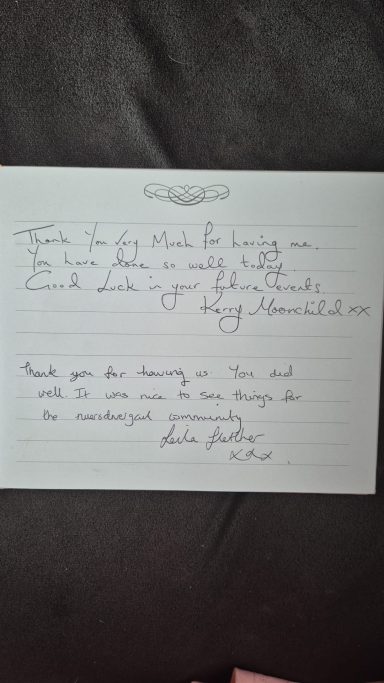 Thank You Very Much for having me.
You have done so well today.
Good Luck in your future events.
Kerry Moonchild xx
Thank you for having us. You did
well. It was nice to see things for
the community
Leila Fletcher
xxx.